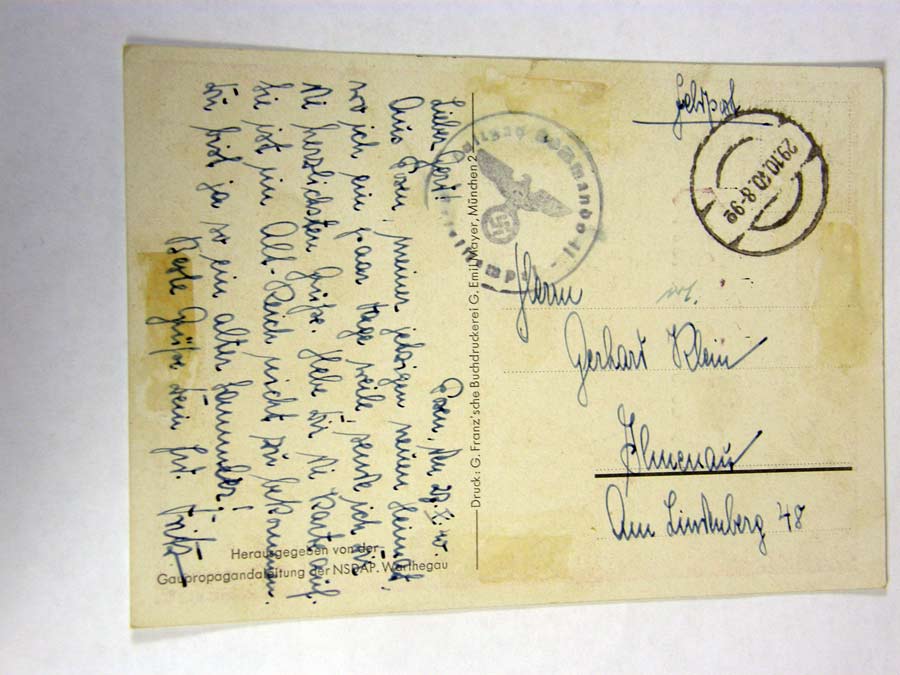 Feldpost
29.10.40.8-9
Kommando-II-
Posen, den 29.X.40.
Lieber Gert!
Aus Posen, meiner jetzigen neuen Heimat,
wo ich ein paar Tage weile, sende ich Dir
die herzlichsten Grüße. Hebe Dir die Karte auf.
Sie ist im Alt-Reich nicht zu bekommen.
Du bist ja so ein alter Sammler!
Beste Grüße Dein Fritz
Herausgegeben von der
Gaupropagandaleitung der NSDAP. Warthegau
Druck: G. Franz'sche Buchdruckerei G. Emil Mayer, München 2
Herrn
Gerhart Klein
Ilmenau
Am Lindenberg 48